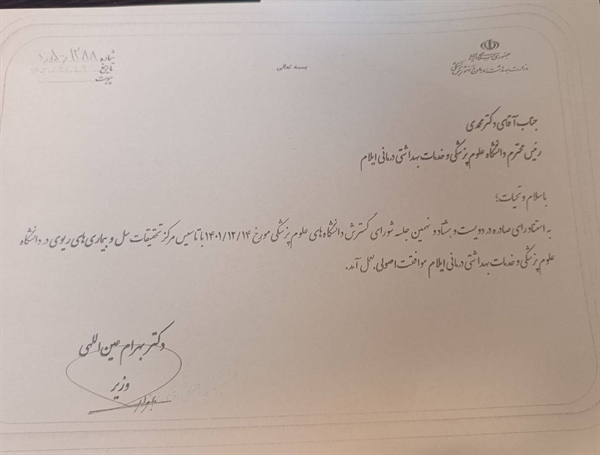 بسمه تعالی
جمهوری اسلامی ایران
وزارت بهداشت، درمان و آموزش پزشکی
شماره
تاریخ
پیوست
جناب آقای دکتر محمدی
رئیس محترم دانشگاه علوم پزشکی و خدمات بهداشتی درمانی ایلام
با سلام و تحیات؛
به استناد رای صادره در دویست و هشتاد و نهمین جلسه شورای گسترش دانشگاه های علوم پزشکی مورخ ۱۴۰۱/۱۲/۱۴ با تاسیس مرکز تحقیقات سل و بیماری های ریوی در دانشگاه
علوم پزشکی و خدمات بهداشتی درمانی ایلام موافقت اصولی بعمل آمد.
دکتر بهرام عین اللهی
وزیر